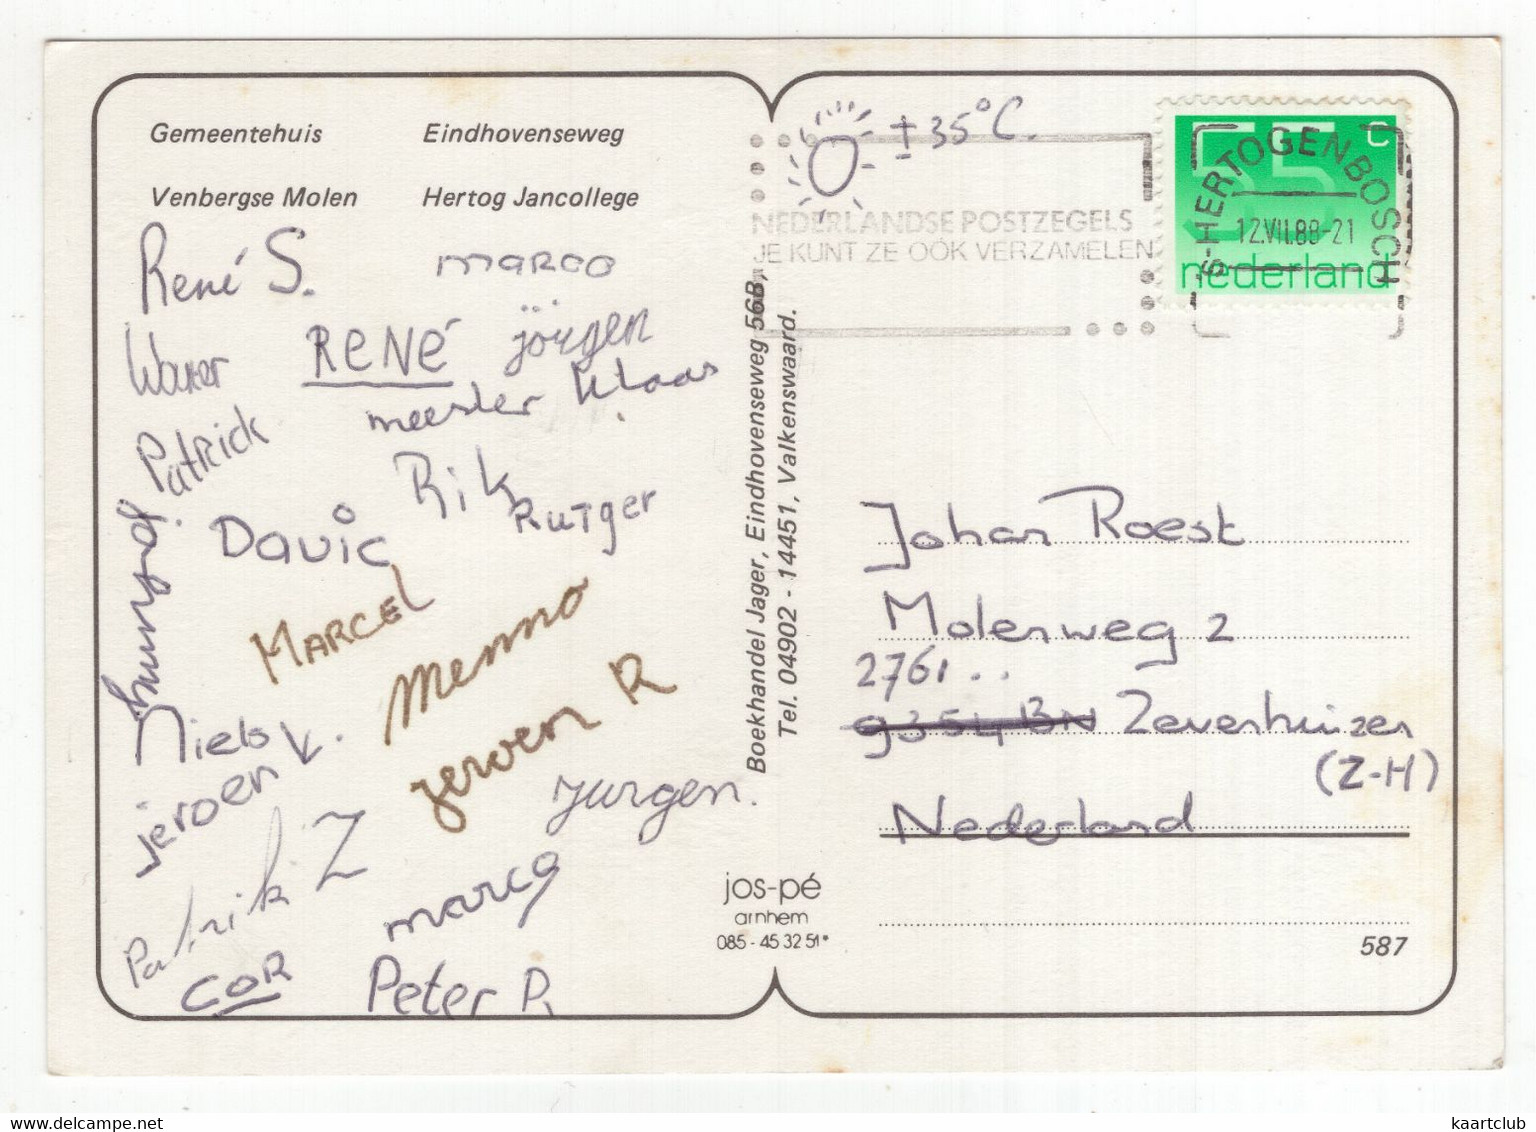 Gemeentehuis Eindhovenseweg
Venbergse Molen Hertog Jancollege
René S. marco
RENÉ jörgen
meester Klaas
Patrick
Rik
Rutger
David
MARCEL
Menno
Niels V.
jeroen R
jeroen
Jurgen.
Patrik Z
marcq
COR
Peter R
Boekhandel Jager, Eindhovenseweg 56B,
Tel. 04902 - 14451, Valkenswaard.
jos-pé
arnhem
085 - 45 32 51*
± 35°C.
NEDERLANDSE POSTZEGELS
JE KUNT ZE OOK VERZAMELEN
55 c
nederland
'S-HERTOGENBOSCH
12.VII.88-21
Johan Roest
Molenweg 2
2761 ..
9354 BN Zevenhuizen
(Z-H)
Nederland
587
kaartclub